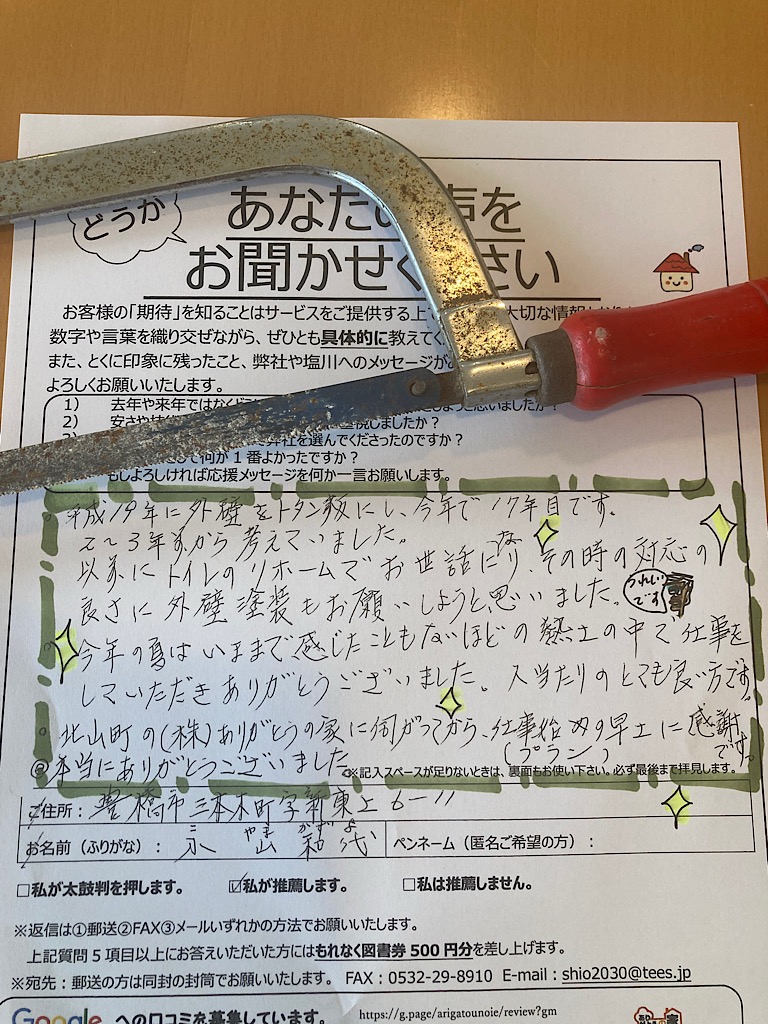 どうか
あなたの声を
お聞かせください
お客様の「期待」を知ることはサービスをご提供する上で 大切な情報
数字や言葉を織り交ぜながら、ぜひとも具体的に教えてく
また、とくに印象に残ったこと、弊社や塩川へのメッセージが
よろしくお願いいたします。
1) 去年や来年ではなく 思いましたか?
2) 安さや 重視しましたか?
弊社を選んでくださったのですか?
何が1番よかったですか?
もしよろしければ応援メッセージを何か一言お願いします。
平成19年に外壁をトタン板にし、今年で17年目です。
2〜3年前から考えていました。
以前にトイレのリホームでお世話になり、その時の対応の
良さに外壁塗装もお願いしようと思いました。
うれしいです
今年の夏はいままで感じたこともないほどの熱土の中で仕事を
していただきありがとうございました。人当たりのとても良い方です。
北山町の(株)ありがとうの家に伺がってから、仕事始めの早土に感謝です。
(プラン)
◎本当にありがとうございました
※記入スペースが足りないときは、裏面もお使い下さい。必ず最後まで拝見します。
ご住所: 豊橋市三本木町字新東上6-11
お名前(ふりがな): 山 和代 ペンネーム(匿名ご希望の方):
やま かずよ
□私が太鼓判を押します。 ☑私が推薦します。 □私は推薦しません。
※返信は①郵送②FAX③メールいずれかの方法でお願いいたします。
上記質問5項目以上にお答えいただいた方にはもれなく図書券500円分を差し上げます。
※宛先:郵送の方は同封の封筒でお願いいたします。 FAX:0532-29-8910 E-mail:shio2030@tees.jp
Google への口コミを募集しています。 https://g.page/arigatounoie/review?gm